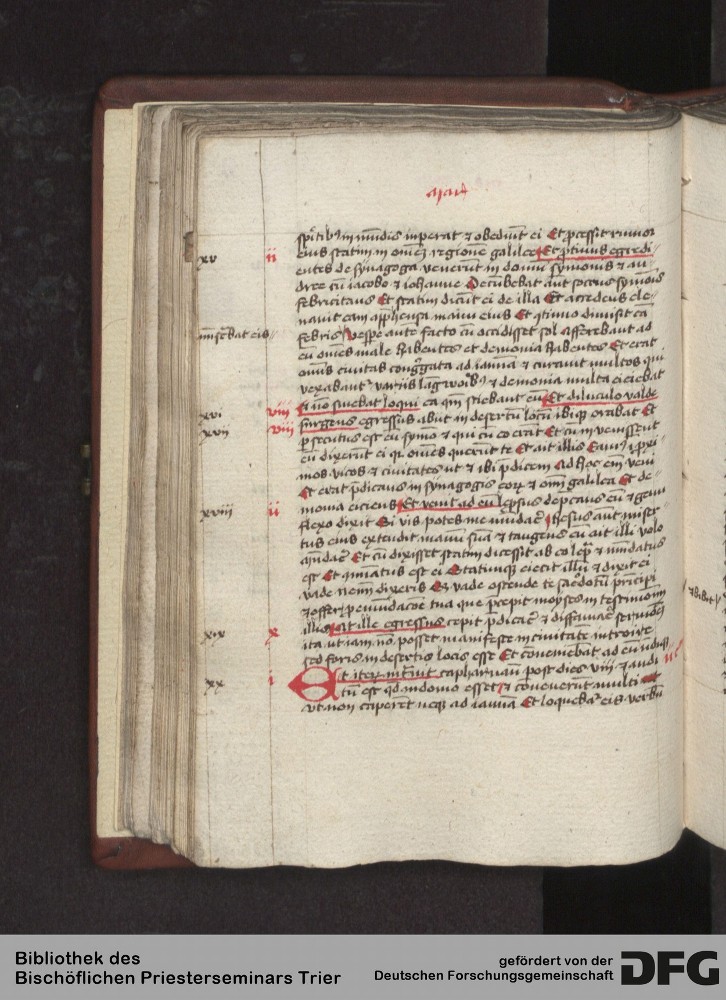 marc
spiritibus inmundis imperat et obediunt ei Et processit rumor
xv ii eius statim in omnem regionem galilee Et protinus egredi
entes de synagoga venerunt in domum symonis et an
dree cum iacobo et iohanne Decumbebat aut socrus symonis
febricitans Et statim dicunt ei de illa Et accedens ele
vavit eam apprehensa manu eius Et continuo dimisit eam
ministrabat eis febris Vespere autem facto cum occidisset sol afferebant ad
eum omnes male habentes et demonia habentes Et erat
omnis civitas congregata ad ianuam et curavit multos qui
vexabantur variis langworibus et demonia multa eiciebat
xvi viii Et non sinebat loqui ea quoniam sciebant eum Et diluculo valde
xvii viii surgens egressus abiit in desertum locum ibique orabat Et
persecutus est eum symon et qui cum eo erant Et cum invenissent
eum dixerunt ei quia omnes querunt te Et ait illis Eamus in proxi
mos vicos et civitates ut et ibi predicem Ad hoc enim veni
Et erat predicans in synagogis eorum et omni galilea Et de
xviii ii monia eiciens Et venit ad eum leprosus deprecans eum et genu
flexo dixit Si vis potes me mundare Ihesus autem miser
tus eius extendit manum suam et tangens eum ait illi volo
mundare Et cum dixisset statim discessit ab eo lepra et mundatus
est Et comminatus est ei Statimque eiecit illum et dixit ei
vade nemini dixeris Sed vade ostende te sacerdotum principi
et offer pro emundacione tua que precepit moyses in testimonium
xix x illis At ille egressus cepit predicare et diffamare sermonem
ita ut iam non posset manifeste in civitate introire
sed foris in desertis locis esse Et conveniebat ad eum undique
xx i Et iterum intravit capharnaum post dies viii et audi
tum est quod in domo esset et convenerunt multi
ut non caperet neque ad ianuam Et loquebatur eis verbum
Bibliothek des
Bischöflichen Priesterseminars Trier
gefördert von der
Deutschen Forschungsgemeinschaft
DFG